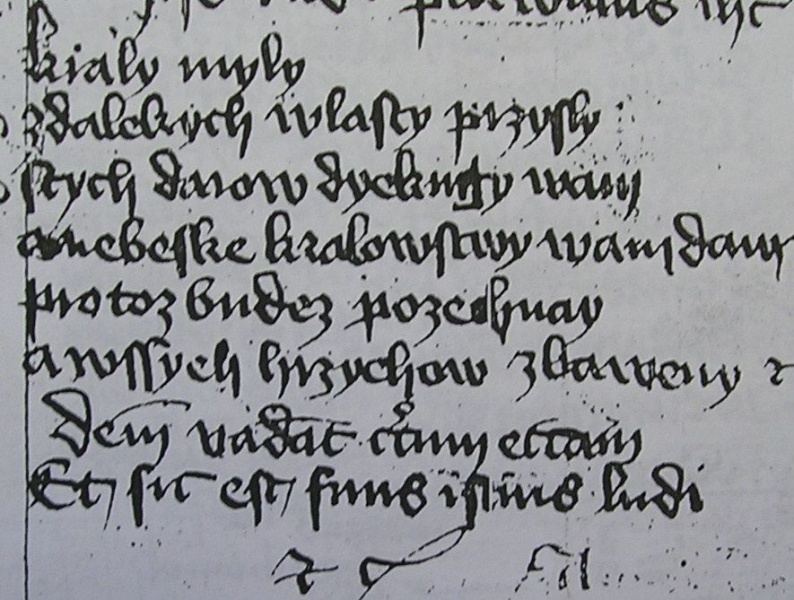 kraly myly
zdalekych wlasty przysly
stych darow dyekugy wam
anebeske kralowstwy wam dam
protoz budez pozehnay
a wssych hrzychow zbaweny
Et sic est finis istius ludi